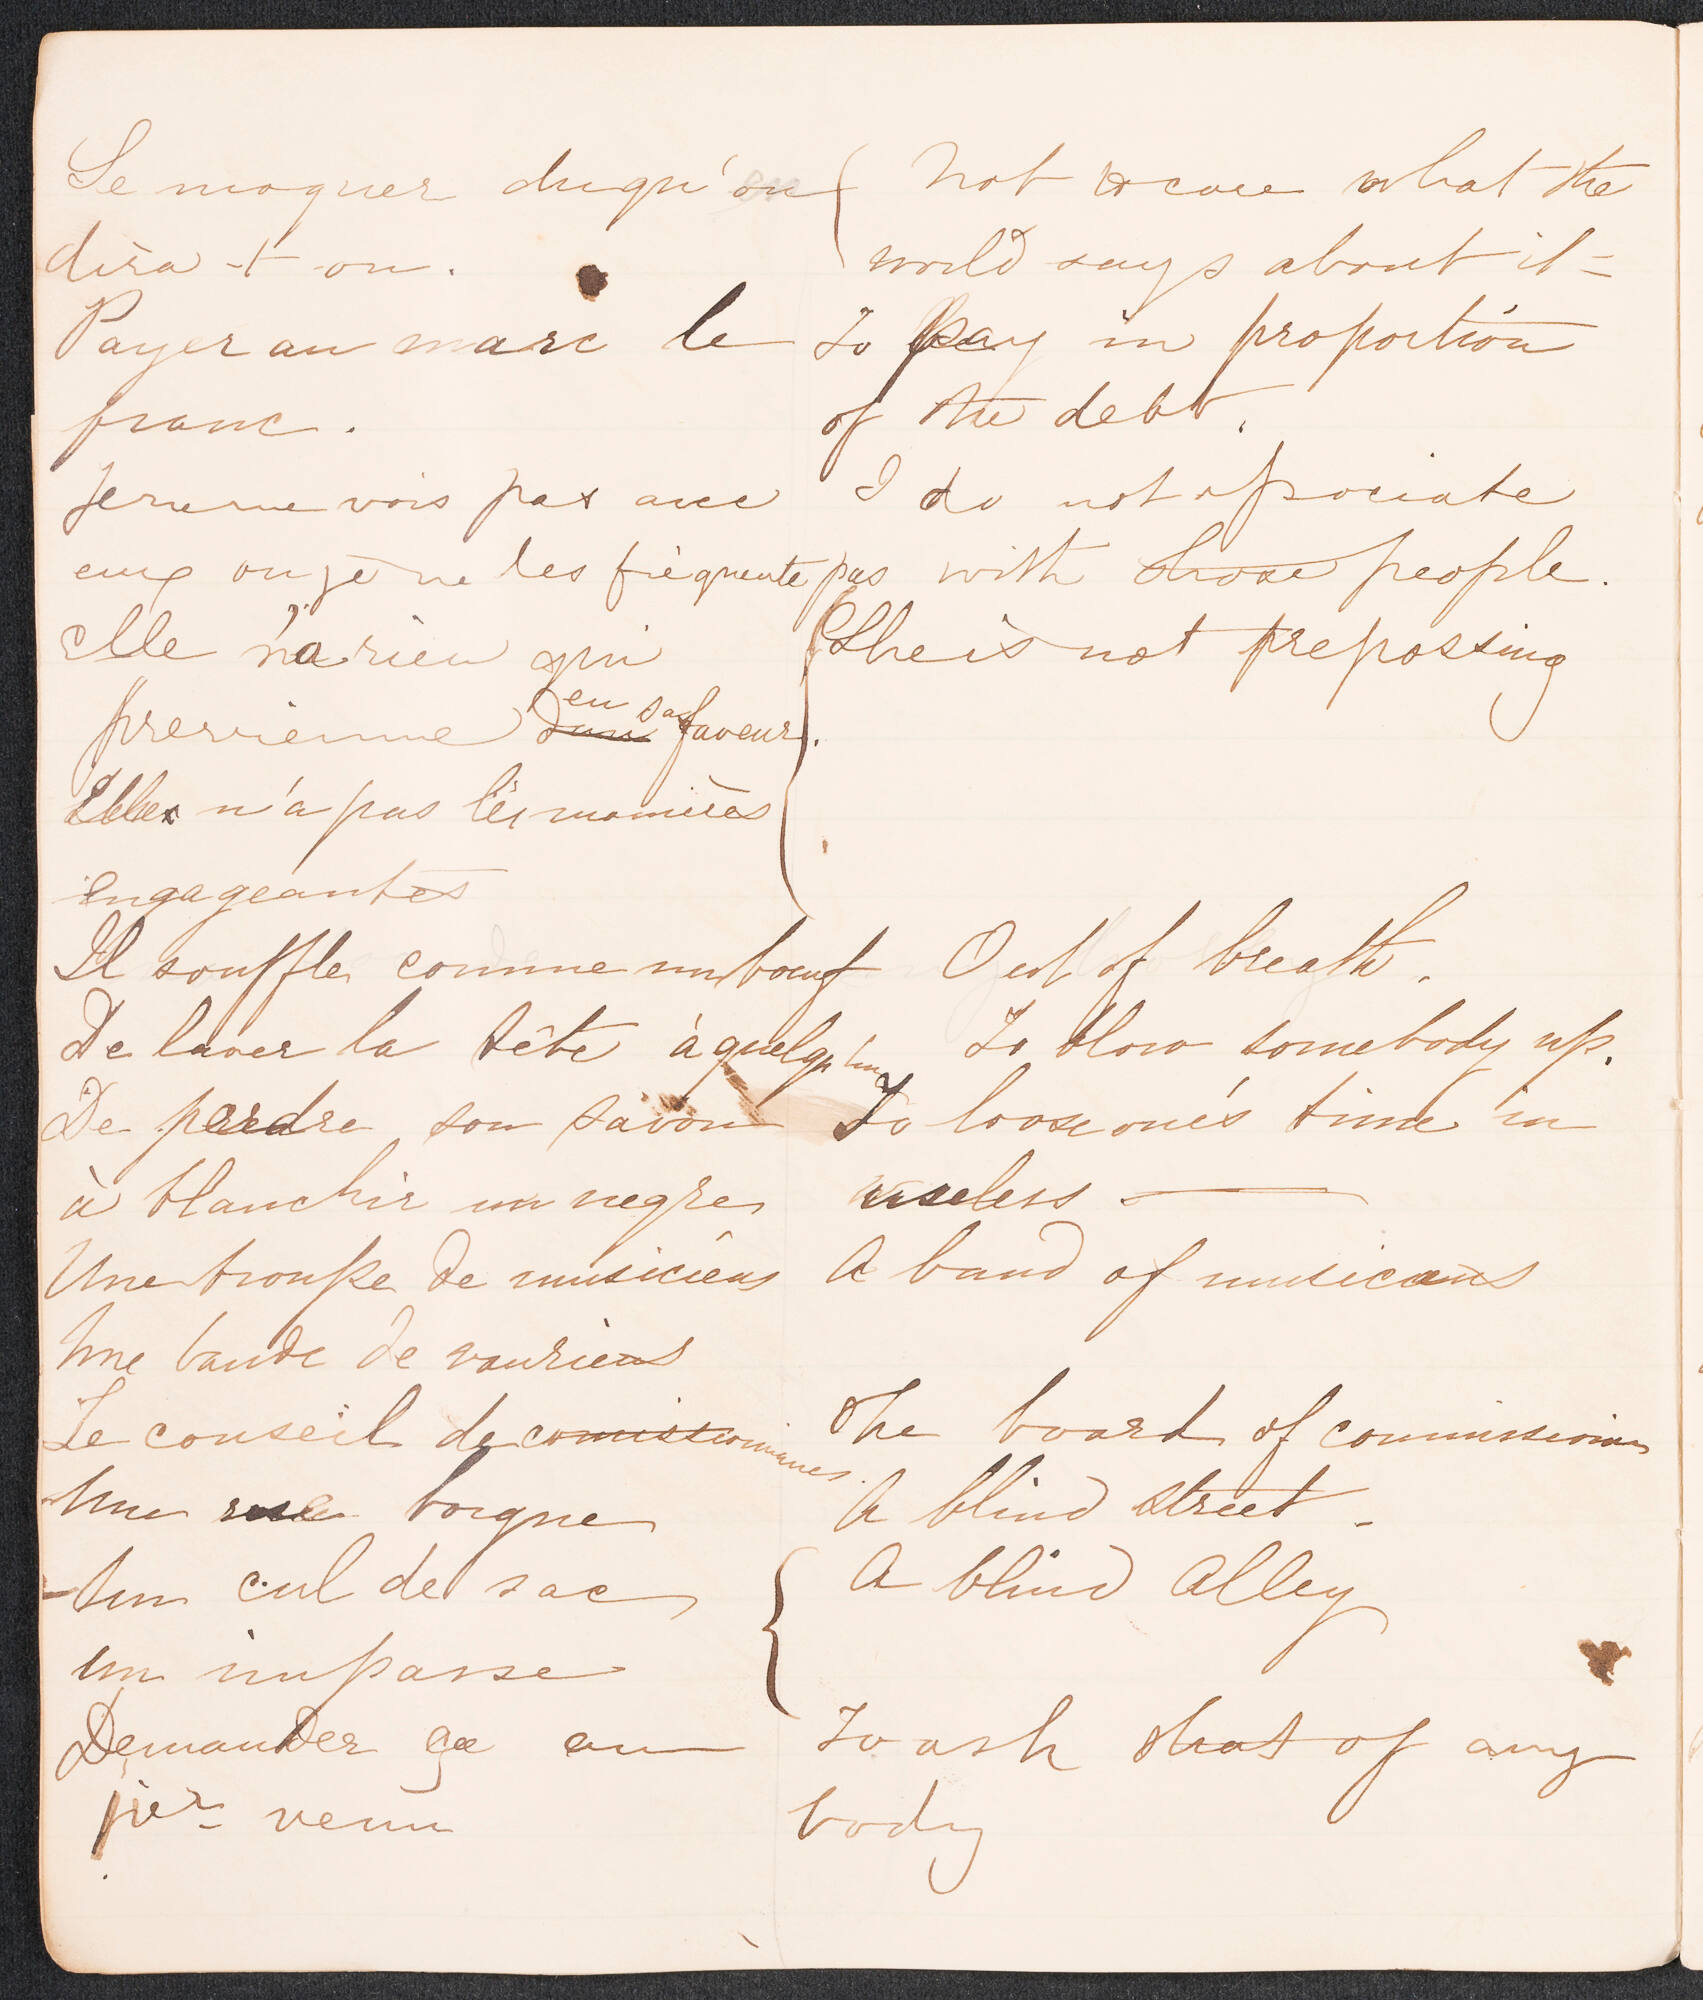 Se moquer duqu'on
dira-t-on.
Payer au marc le
franc.
Je ne me vois pas avec
eux ou je ne les fréquente pas
Elle n'a rien qui
previenne en sa faveur.
Elle n'a pas les manières
engageantes
Il souffle comme un boeuf
De laver la tête à quelqu'un
De perdre son savon
à blanchir un negre
Une troupe de musiciens
Une bande de vauriens
Le conseil de comissionnaires.
Une rue borgne
Un cul de sac
un impasse
Demander ça au
pier venu
Not to care what the
world says about it =
To pay in proportion
of the debt.
I do not associate
with those people.
She is not prepossing
Out of breath.
To blow somebody up.
To loose one's time in
useless —
A band of musicans
The board of commissioners
A blind street -
A blind Alley
To ask that of any
body